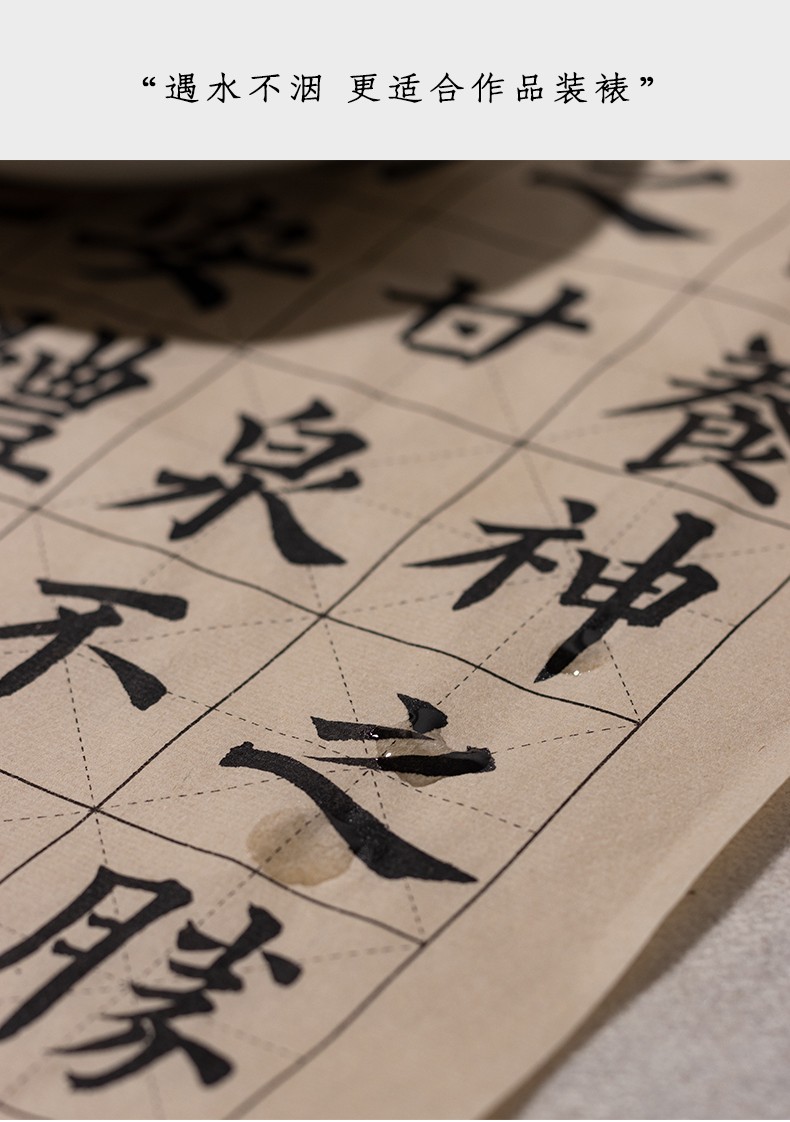 “遇水不洇 更适合作品装裱”
養神之勝
甘泉不